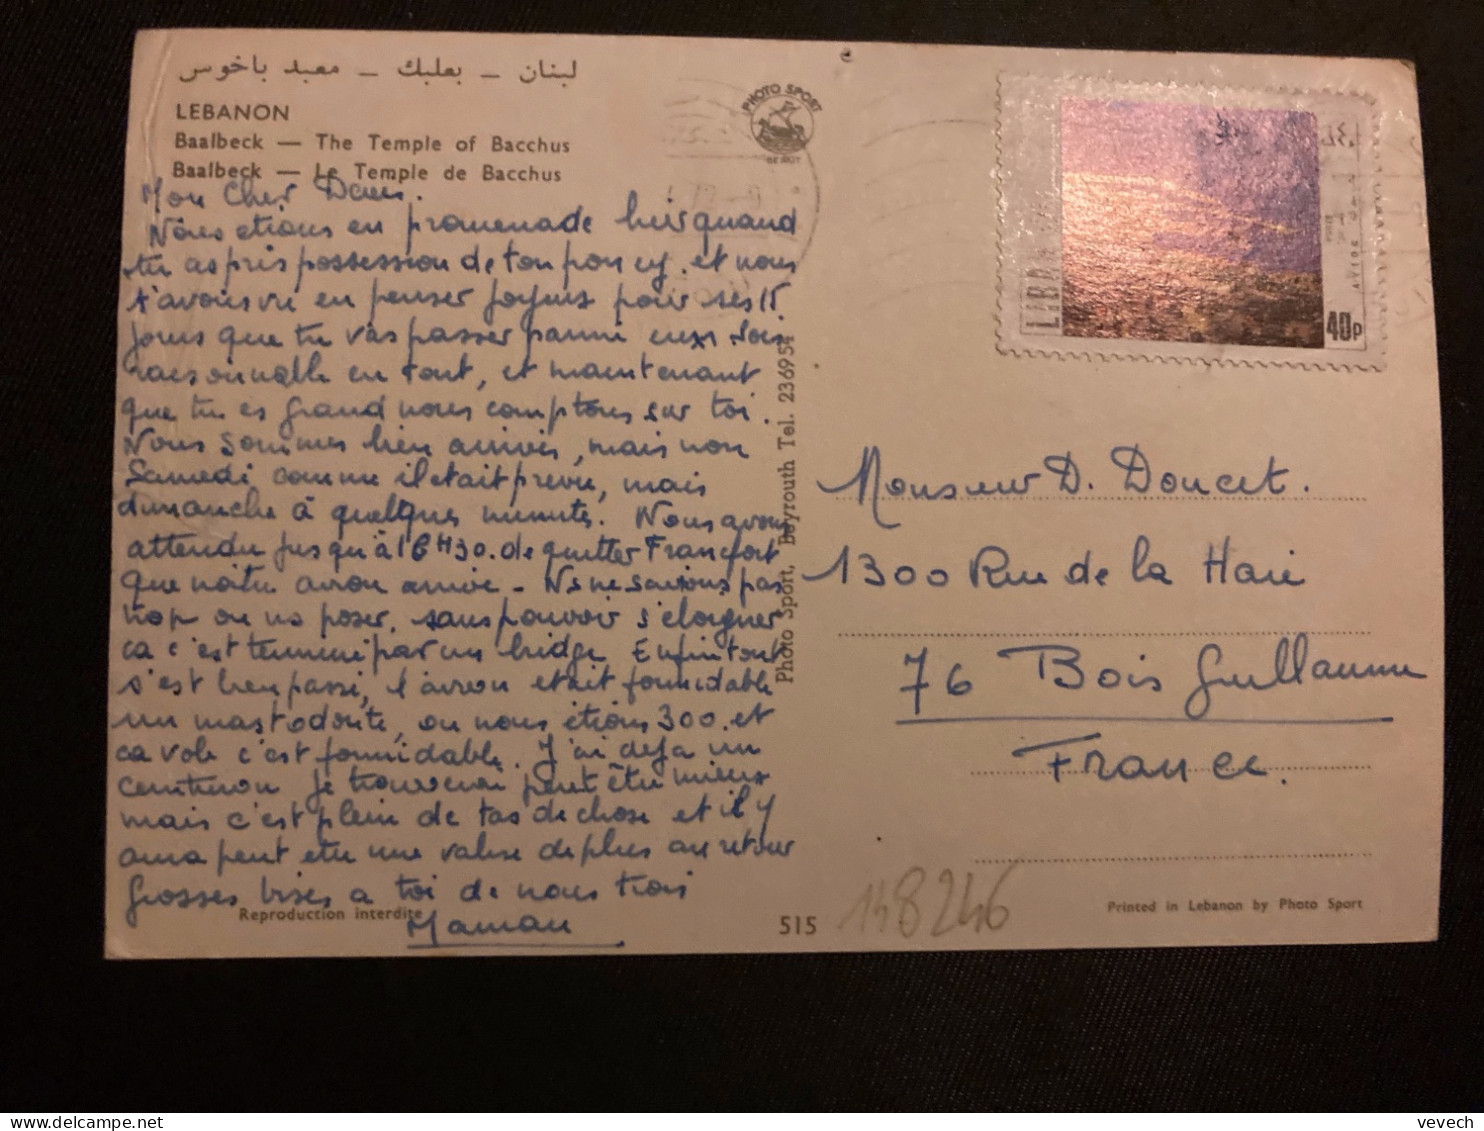 لبنان _ بعلبك _ معبد باخوس
LEBANON
Baalbeck — The Temple of Bacchus
Baalbeck — Le Temple de Bacchus
PHOTO SPORT
BEIRUT
LIBAN
40p
Mon cher Denis.
Nous etions en promenade hier quand
tu as pris possession de ton poney. et nous
t'avons vu en penser joyeux pour ses 15
jours que tu vas passer parmi eux. Sois
raisonnable en tout, et maintenant
que tu es grand nous comptons sur toi.
Nous sommes bien arrivés, mais non
Samedi comme il etait prevu, mais
dimanche à quelques minutes. Nous avons
attendu jusqu'à 16H30. de quitter Francfort
que notre avion arrive - Ns ne savions pas
trop ou ns poser. sans pouvoir s'eloigner
ca c'est terminé par un bridge. Enfin tout
s'est bien passé, l'avion etait formidable
un mastodonte, ou nous étions 300. et
ca vole c'est formidable. J'ai deja un
ceinturon je trouverai peut être mieux
mais c'est plein de tas de chose et il y
aura peut etre une valise de plus au retour
Grosses bises a toi de nous trois
Maman
Reproduction interdite
515
148246
Photo Sport, Beyrouth Tel. 236954
Monsieur D. Doucet.
1300 Rue de la Haie
76 Bois Guillaume
France.
Printed in Lebanon by Photo Sport
vevech